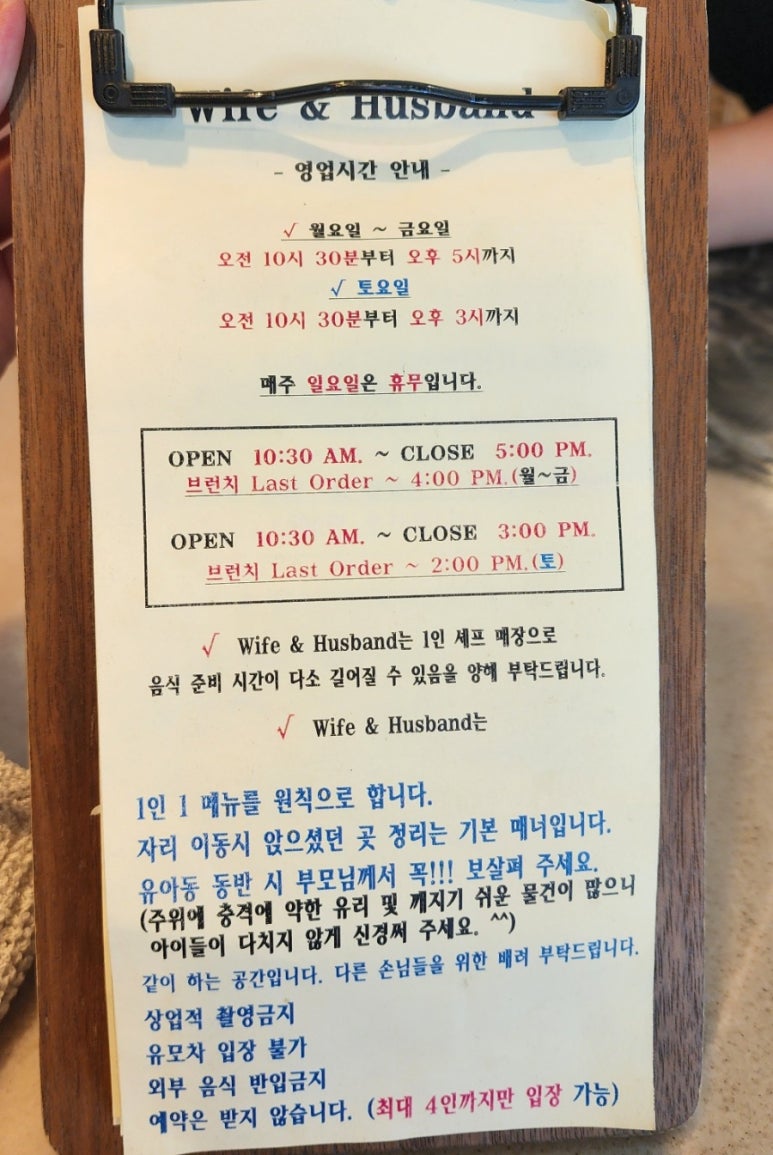 Wife & Husband
- 영업시간 안내 -
√ 월요일 ~ 금요일
오전 10시 30분부터 오후 5시까지
√ 토요일
오전 10시 30분부터 오후 3시까지
매주 일요일은 휴무입니다.
OPEN 10:30 AM. ~ CLOSE 5:00 PM.
브런치 Last Order ~ 4:00 PM.(월~금)
OPEN 10:30 AM. ~ CLOSE 3:00 PM.
브런치 Last Order ~ 2:00 PM.(토)
√ Wife & Husband는 1인 셰프 매장으로
음식 준비 시간이 다소 길어질 수 있음을 양해 부탁드립니다.
√ Wife & Husband는
1인 1 메뉴를 원칙으로 합니다.
자리 이동시 앉으셨던 곳 정리는 기본 매너입니다.
유아동 동반 시 부모님께서 꼭!!! 보살펴 주세요.
(주위에 충격에 약한 유리 및 깨지기 쉬운 물건이 많으니
아이들이 다치지 않게 신경써 주세요. ^^)
같이 하는 공간입니다. 다른 손님들을 위한 배려 부탁드립니다.
상업적 촬영금지
유모차 입장 불가
외부 음식 반입금지
예약은 받지 않습니다. (최대 4인까지만 입장 가능)